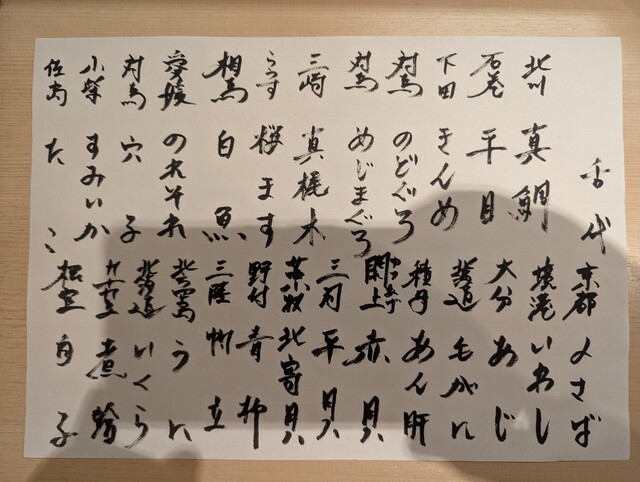 舌代
北川 真鯛
石巻 平目
下田 きんめ
対馬 のどぐろ
対馬 めじまぐろ
三崎 真梶木
らうす 桜ます
相馬 白魚
愛媛 のれそれ
対馬 穴子
小柴 すみいか
佐島 たこ
京都 〆さば
境港 いわし
大分 あじ
北海道 毛がに
積丹 あん肝
閖上 赤貝
三河 平貝
北寄貝
野付 青柳
三陸 帆立
うに
北海道 いくら
煮蛤
白子